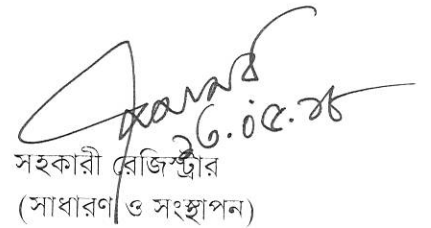 ২৬.০৫.২৮
সহকারী রেজিস্ট্রার
(সাধারণ ও সংস্থাপন)